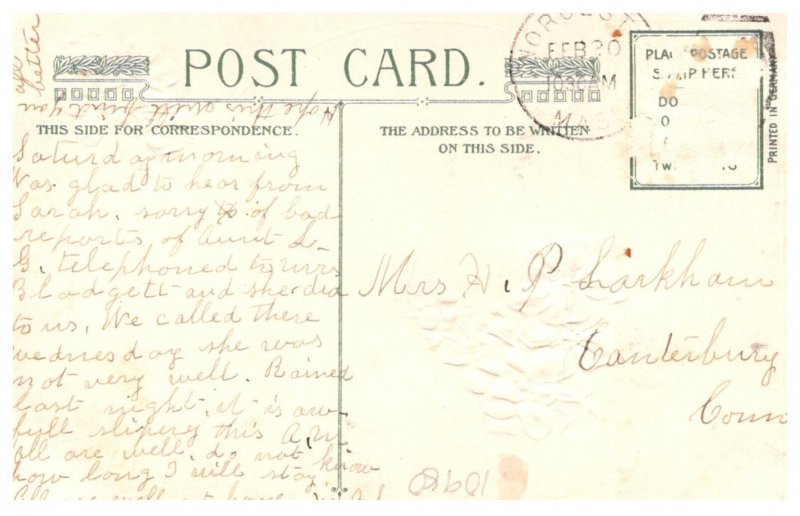 POST CARD.
THIS SIDE FOR CORRESPONDENCE.
THE ADDRESS TO BE WRITTEN
ON THIS SIDE.
FEB 20
AM
MAS
POSTAGE
DO
PRINTED IN GERMANY
Saturday morning
Was glad to hear from
Sarah, sorry to of bad
reports of Aunt L
G. telephoned to Mrs
Blodgett and she did
to us. We called there
wednesday she was
not very well. Rained
last night, it is aw-
full sliping this A.M.
All are well, do not know
how long I will stay
All are well at home
Hope this will find you
all better
Mrs H. P. Larkham
Canterbury
Conn
10980